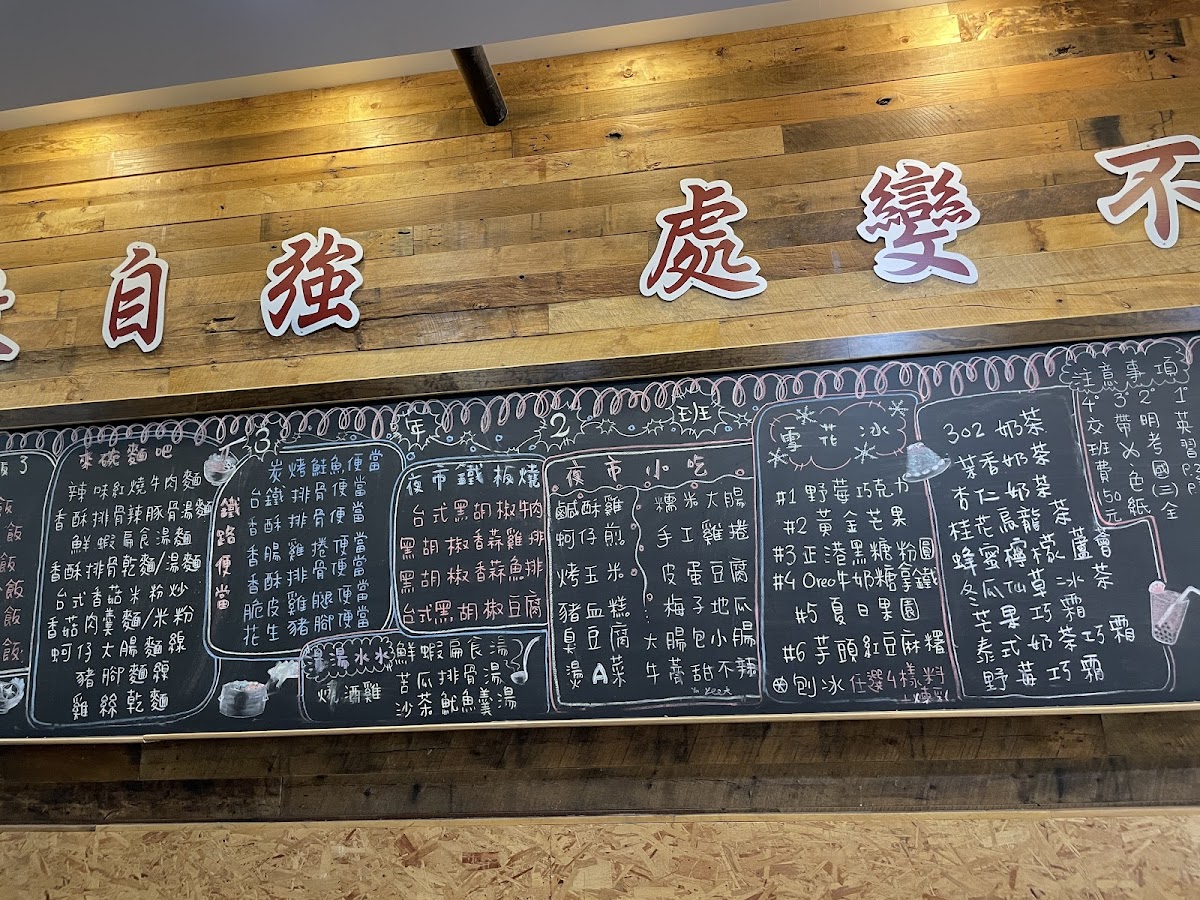 自強 處變不
3年2班
來碗麵吧
辣味紅燒牛肉麵
香酥排骨辣豚骨湯麵
鮮蝦扁食湯麵
香酥排骨乾麵/湯麵
台式香菇米粉炒
香菇肉羹麵/米粉
蚵仔大腸麵線
豬腳麵線
雞絲乾麵
鐵路便當
炭烤鮭魚便當
台鐵排骨便當
香酥排骨便當
香腸雞捲便當
香酥排骨便當
脆皮雞腿便當
花生豬腳便當
湯湯水水
燒酒雞
鮮蝦扁食湯
苦瓜排骨湯
沙茶魷魚羹湯
夜市鐵板燒
台式黑胡椒牛肉
黑胡椒香蒜雞排
黑胡椒香蒜魚排
台式黑胡椒豆腐
夜市小吃
鹹酥雞
蚵仔煎
烤玉米
豬血糕
臭豆腐
燙A菜
糯米大腸
手工雞捲
皮蛋豆腐
梅子地瓜
大腸包小腸
牛蒡甜不辣
雪花冰
#1 野莓巧克力
#2 黃金芒果
#3 正港黑糖粉圓
#4 Oreo牛奶糖拿鐵
#5 夏日果園
#6 芋頭紅豆麻糬
刨冰 任選4樣料
+煉乳
302 奶茶
茶香奶茶
杏仁奶茶
桂花烏龍茶
蜂蜜檸檬蘆薈
冬瓜仙草冰茶
芒果巧霜
泰式奶茶巧霜
野莓巧霜
注意事項
1. 英習
2. 明考國(三)全
3. 帶色紙
4. 交班費50元